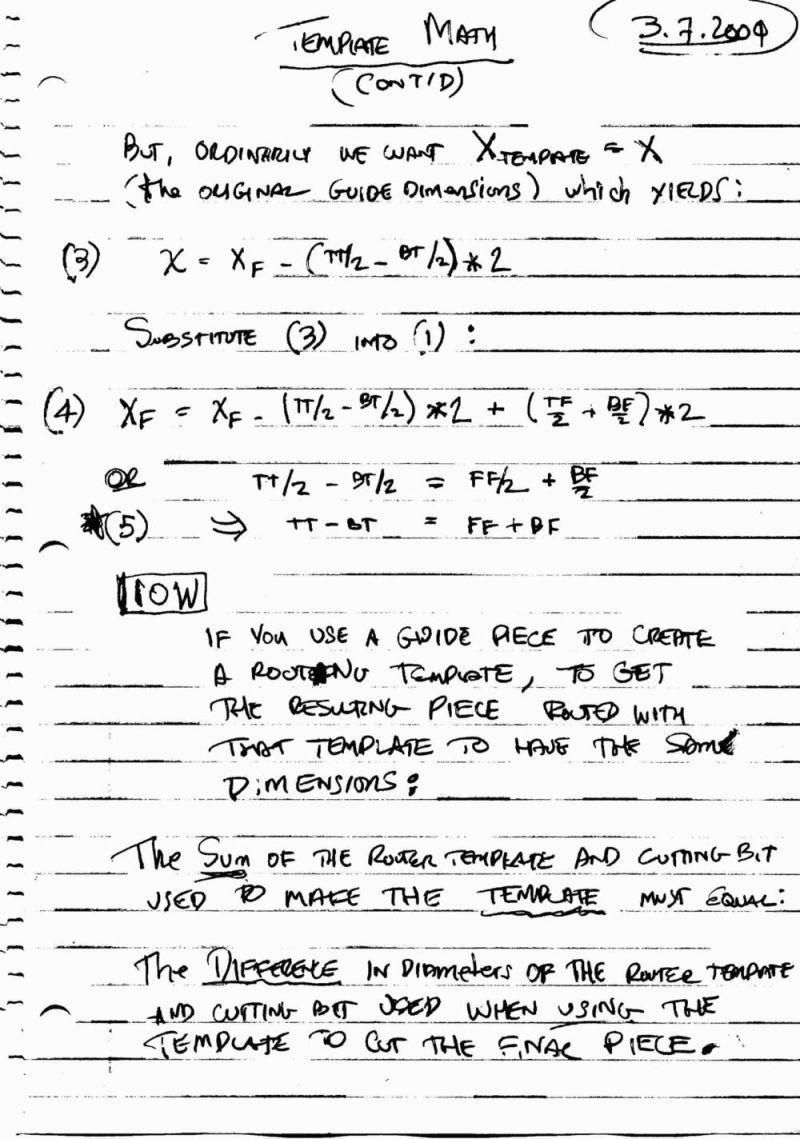 TEMPLATE MATH
(CONT'D)
3.7.2009
BUT, ORDINARILY WE WANT X TEMPLATE = X
(the ORIGINAL GUIDE DIMENSIONS) which YIELDS:
(3) X = XF - (TT/2 - BT/2) * 2
SUBSTITUTE (3) INTO (1) :
(4) XF = XF - (TT/2 - BT/2) * 2 + (TF/2 + BF/2) * 2
OR TT/2 - BT/2 = FF/2 + BF/2
*(5) ⇒ TT - BT = FF + BF
NOW
IF YOU USE A GUIDE PIECE TO CREATE
A ROUTING TEMPLATE, TO GET
THE RESULTING PIECE ROUTED WITH
THAT TEMPLATE TO HAVE THE SAME
DIMENSIONS:
The SUM OF THE ROUTER TEMPLATE AND CUTTING BIT
USED TO MAKE THE TEMPLATE MUST EQUAL:
The DIFFERENCE IN DIAMETERS OF THE ROUTER TEMPLATE
AND CUTTING BIT USED WHEN USING THE
TEMPLATE TO CUT THE FINAL PIECE.